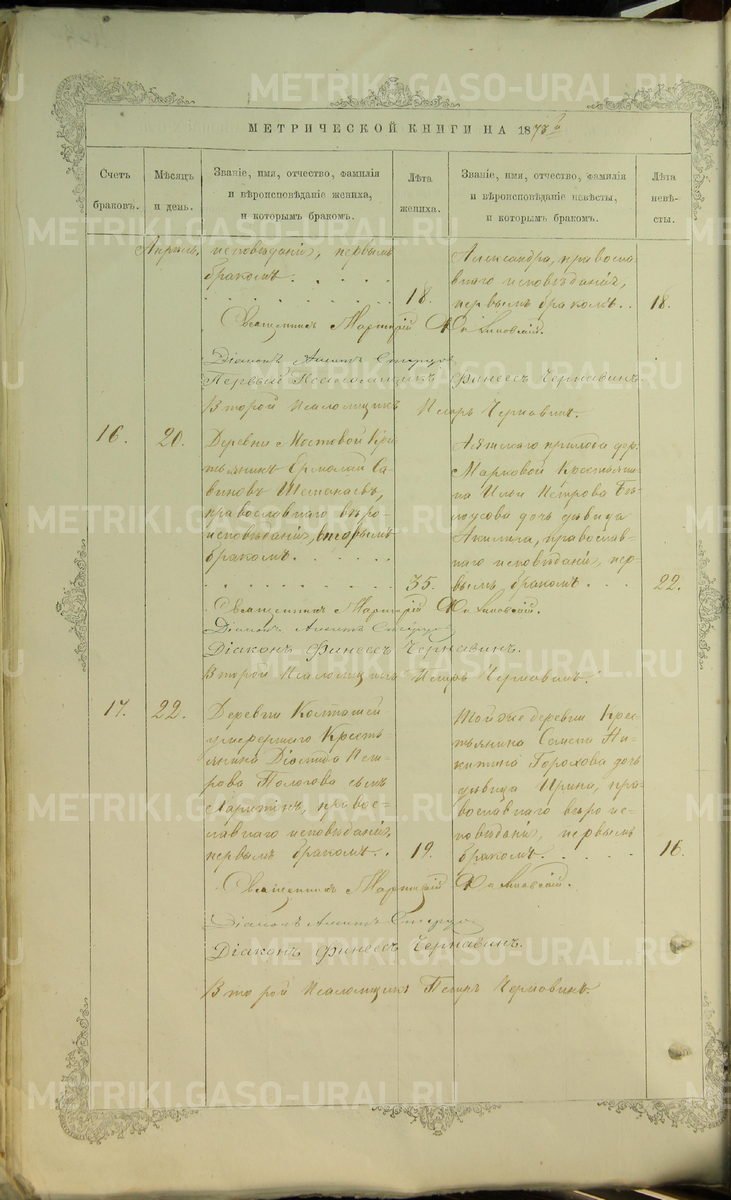 МЕТРИЧЕСКОЙ КНИГИ НА 187
Счетъ браковъ.
Мѣсяцъ и день.
Званіе, имя, отчество, фамилія
и вѣроисповѣданіе жениха,
и которымъ бракомъ.
Лѣта жениха.
Званіе, имя, отчество, фамилія
и вѣроисповѣданіе невѣсты,
и которымъ бракомъ.
Лѣта невѣ-
сты.
Апрѣль.
исповѣданія, первымъ
бракомъ.
18.
Александра, правосла
внаго исповѣданія,
первымъ бракомъ.
18.
Священникъ
Діаконъ
Первый Псаломщикъ Финеесъ Чернавинъ.
Второй Псаломщикъ Петръ Чернавинъ.
16.
20.
Деревни Мостовой Кре
тьянинъ Ермолай Са
виновъ
православнаго вѣро-
исповѣданія, вторымъ
бракомъ.
35.
прихода дер.
Марковой Крестьяни
на Ильи Петрова Бѣ
лоусова дочь дѣвица
Акилина, православ-
наго исповѣданія, пер-
вымъ бракомъ.
22.
Священникъ
Діаконъ
Діаконъ Финеесъ Чернавинъ.
Второй Псаломщикъ Петръ Чернавинъ.
17.
22.
Деревни Колташей
умершаго Кресть-
янина Діомида Пет-
рова сынъ
правос-
лавнаго исповѣданія,
первымъ бракомъ.
19.
Той же деревни Крес
тьянина Семена Ни-
китина Горохова дочь
дѣвица Ирина, пра-
вославнаго вѣроис-
повѣданія, первымъ
бракомъ.
16.
Священникъ
Діаконъ
Діаконъ Финеесъ Чернавинъ.
Второй Псаломщикъ Петръ Чернавинъ.
METRIKI.GASO-URAL.RU